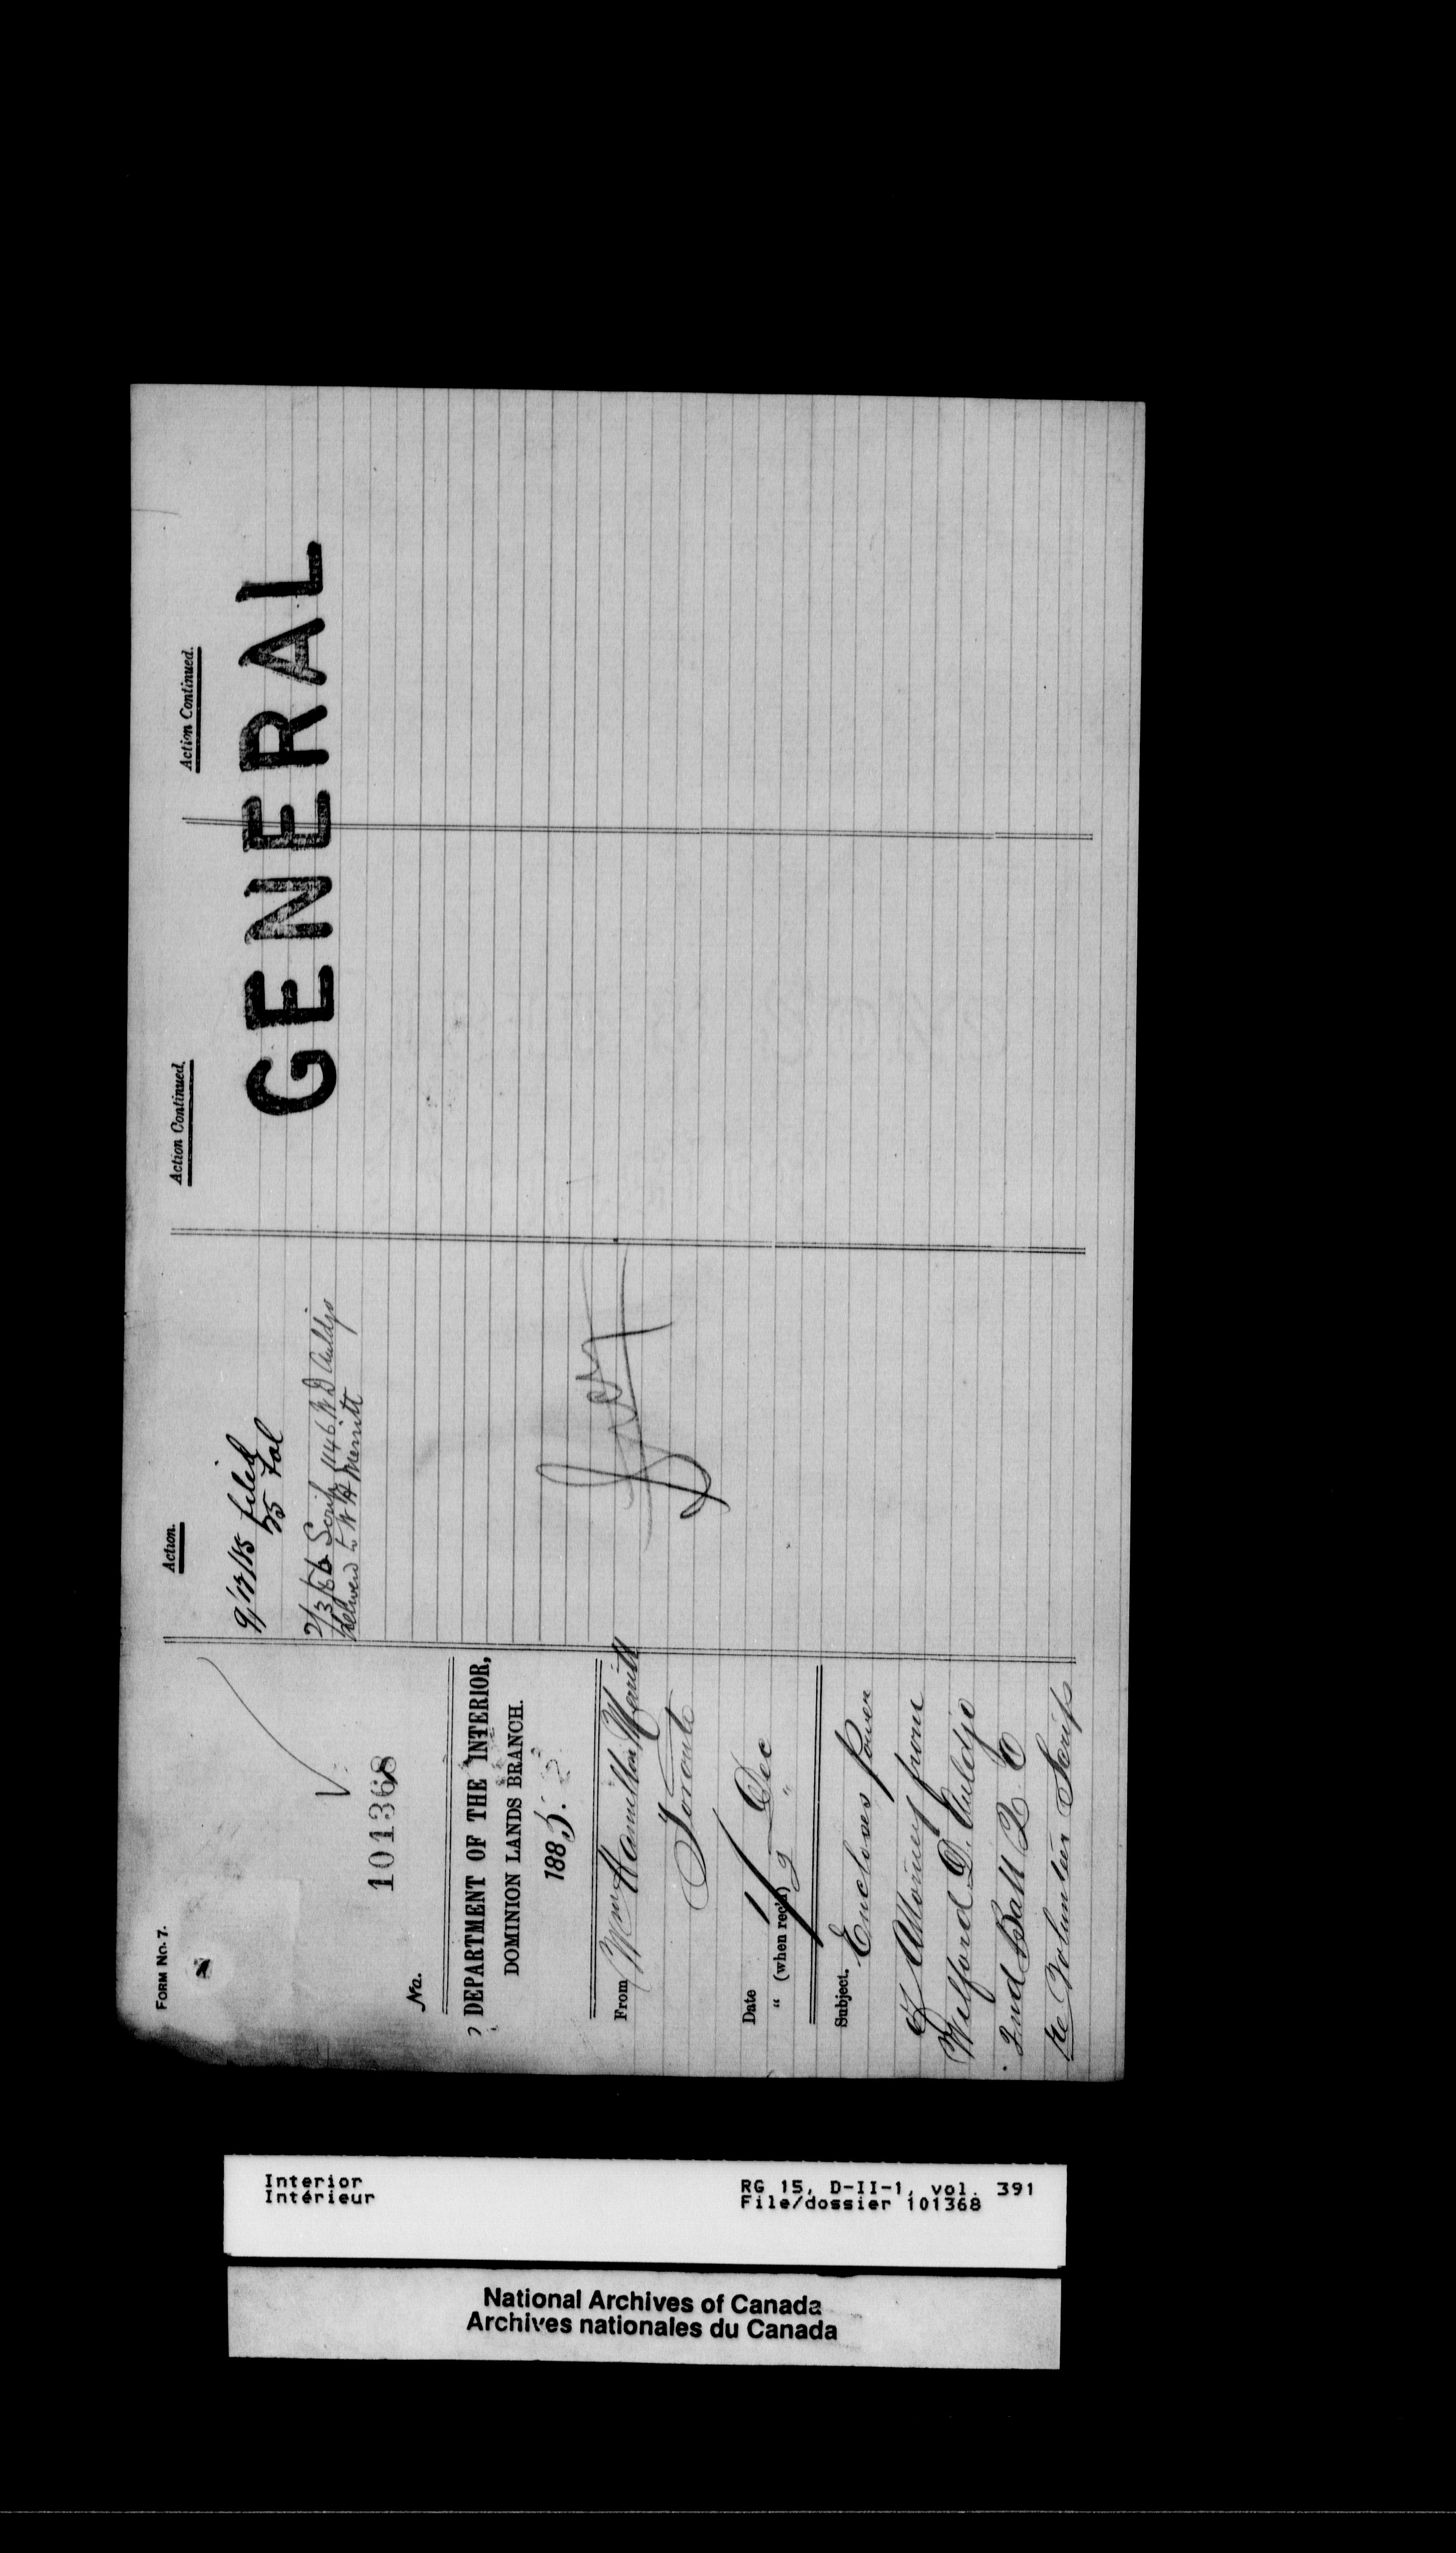 FORM No. 7.
101368
No.
DEPARTMENT OF THE INTERIOR,
DOMINION LANDS BRANCH.
1885.
From Wm Hamilton Merritt
Toronto
Date 1 Dec
" (when rec'd) 9 "
Subject. Encloses Power
of Attorney from
Wilford D. Auldjo
2nd Batt Q O
re Volunteer Scrip
Action.
9/12/85 filed
2/3/86 Scrip 1146 W D Auldjo
delivered to W H Merritt
Action Continued.
Action Continued.
GENERAL
Interior
Intérieur
RG 15, D-II-1, vol. 391
File/dossier 101368
National Archives of Canada
Archives nationales du Canada